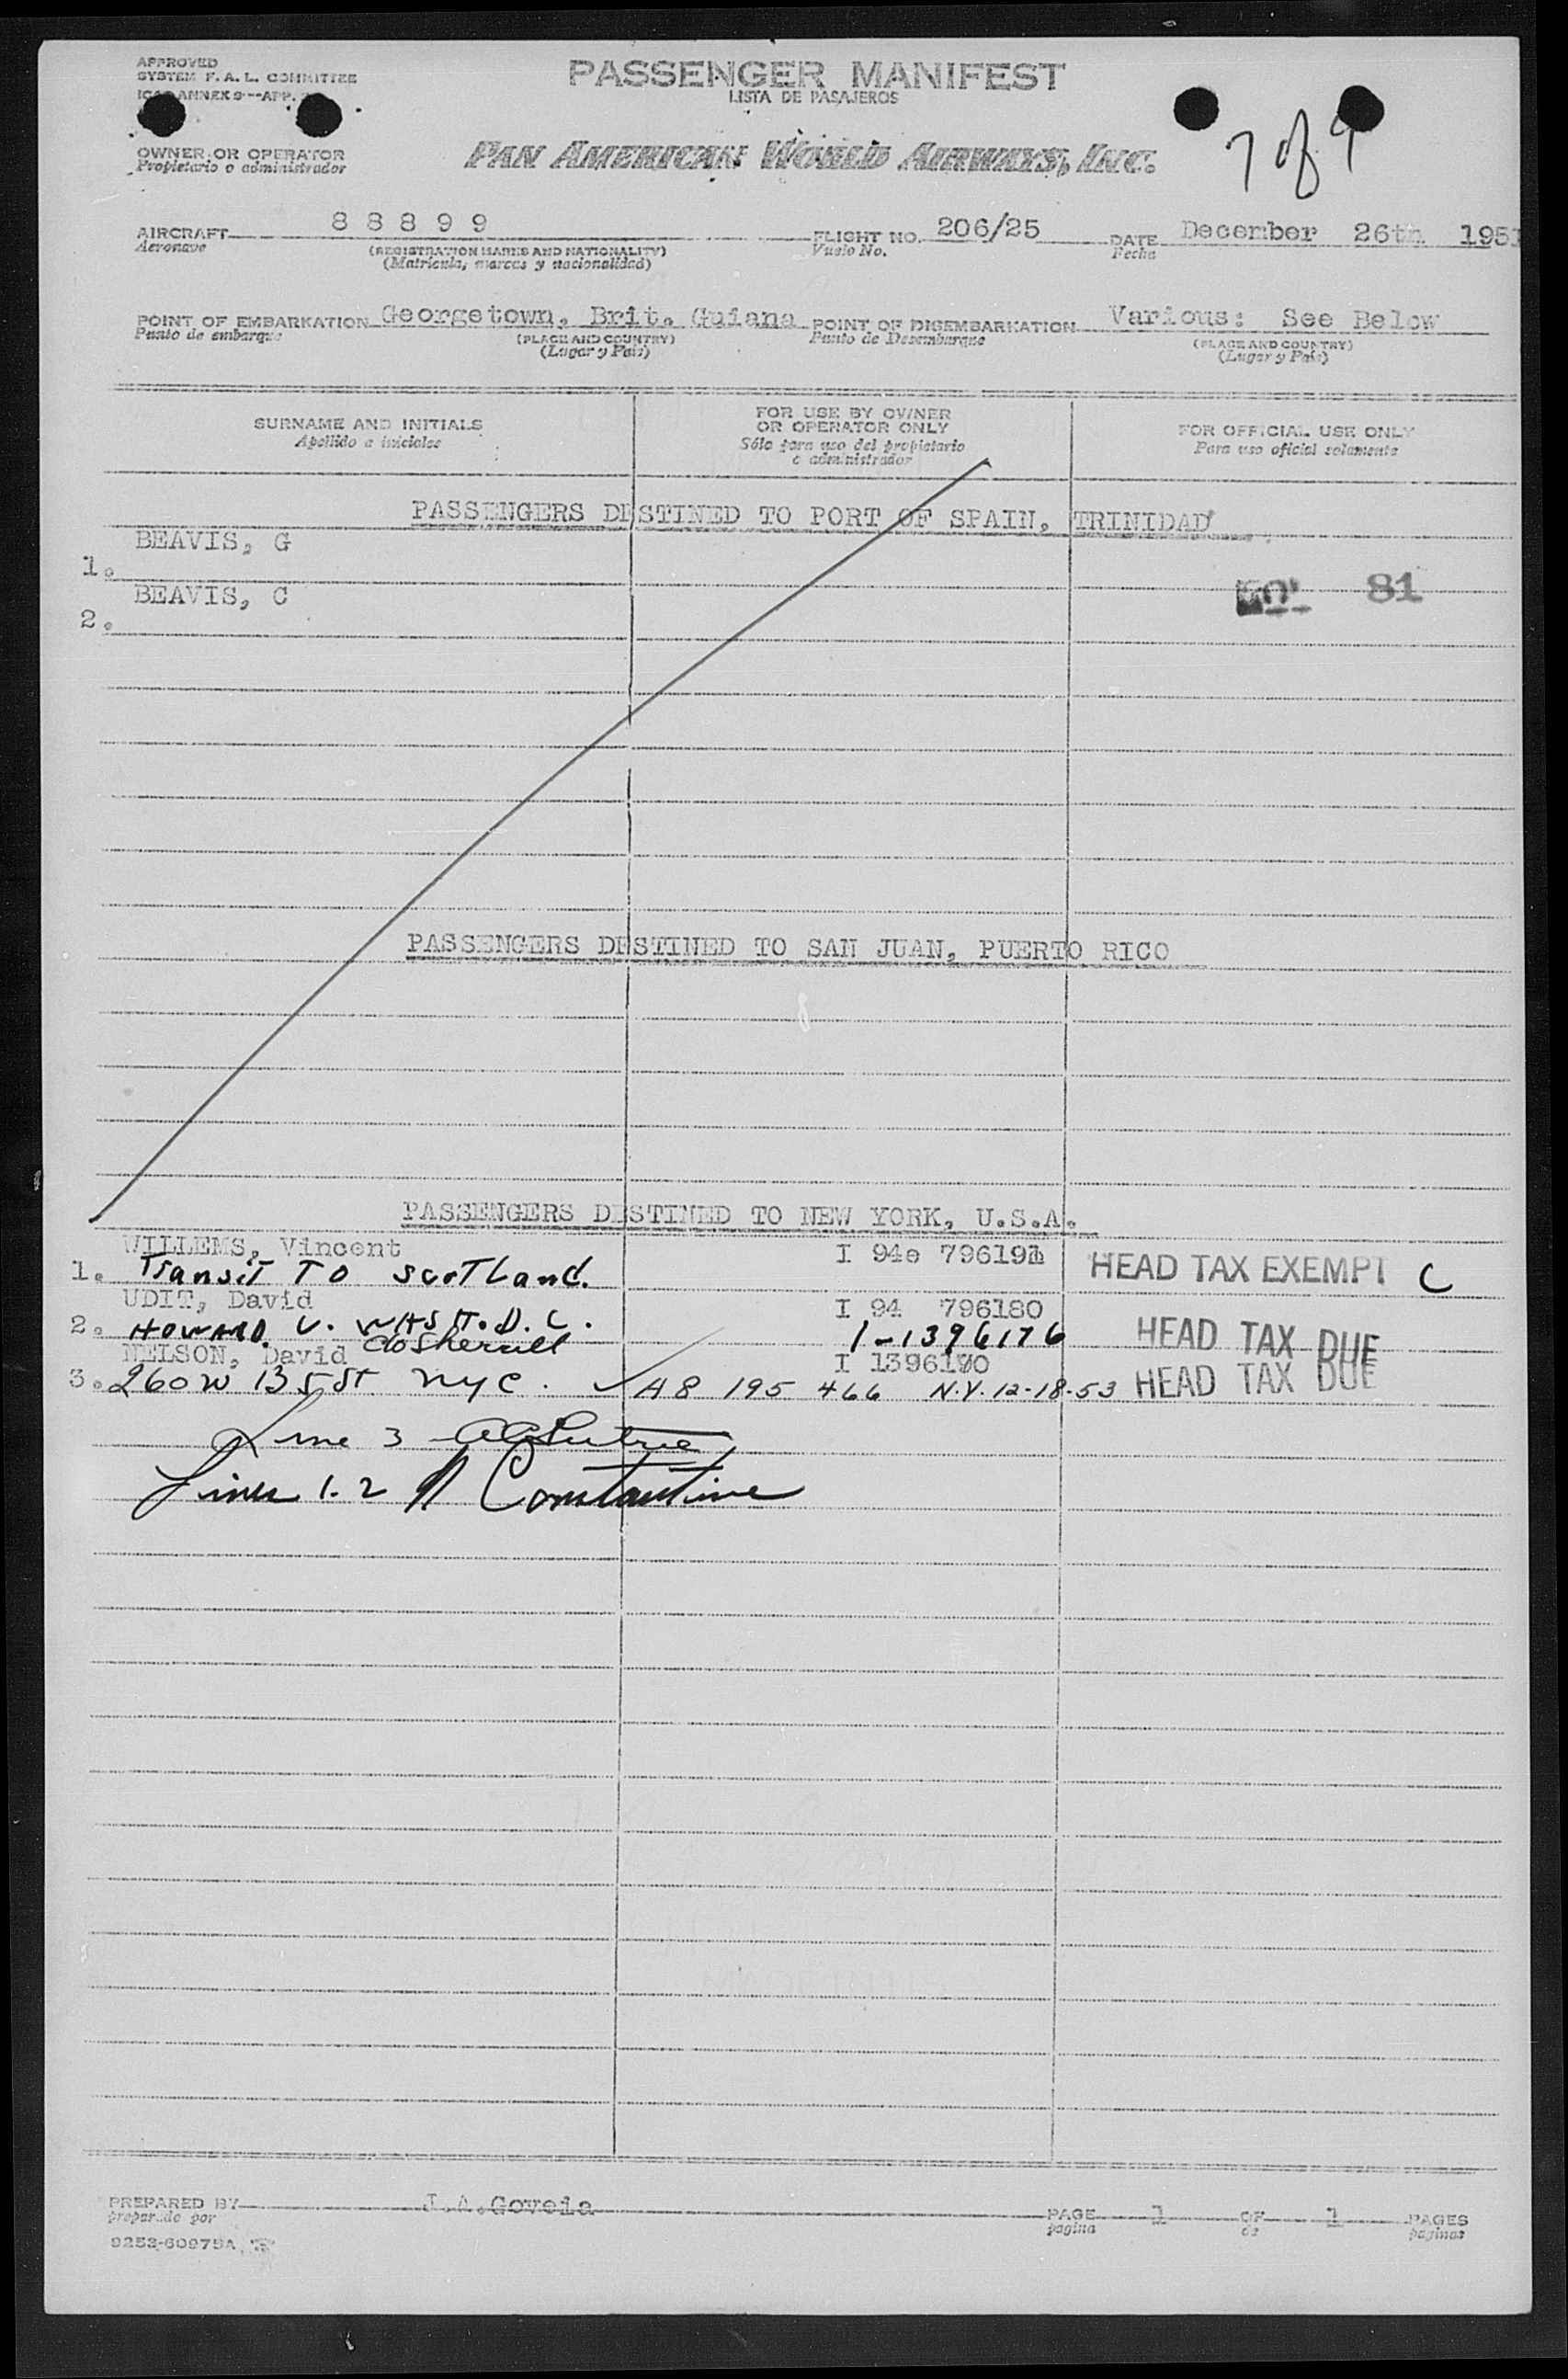 APPROVED
SYSTEM F. A. L. COMMITTEE
ANNEX 9--APP.
PASSENGER MANIFEST
LISTA DE PASAJEROS
7 of 9
OWNER OR OPERATOR
Propietario o administrador
PAN AMERICAN WORLD AIRWAYS, INC.
AIRCRAFT 8 8 8 9 9 FLIGHT NO. 206/25 DATE December 26th 1951
Aeronave (REGISTRATION MARKS AND NATIONALITY) Vuelo No. Fecha
(Matricula, marcas y nacionalidad)
POINT OF EMBARKATION Georgetown, Brit. Guiana POINT OF DISEMBARKATION Various: See Below
Punto de embarque (PLACE AND COUNTRY) Punto de Desembarque (PLACE AND COUNTRY)
(Lugar y País) (Lugar y País)
SURNAME AND INITIALS
Apellido a iniciales
FOR USE BY OWNER
OR OPERATOR ONLY
Sólo para uso del propietario
o administrador
FOR OFFICIAL USE ONLY
Para uso oficial solamente
PASSENGERS DESTINED TO PORT OF SPAIN, TRINIDAD
BEAVIS, G
1.
BEAVIS, C 81
2.
PASSENGERS DESTINED TO SAN JUAN, PUERTO RICO
PASSENGERS DESTINED TO NEW YORK, U.S.A.
WILLEMS, Vincent I 94e 796191
1. Transit TO Scotland. HEAD TAX EXEMPT C
UDIT, David I 94 796180
2. HOWARD U. WASH. D. C. 1-1396176 HEAD TAX DUE
NELSON, David c/o Sherrill I 1396180
3. 260 W 135 St nyc. A8 195 466 N.Y. 12-18-53 HEAD TAX DUE
Line 3
Lines 1.2 Constantine
PREPARED BY J.A.Goveia PAGE 1 OF 1 PAGES
preparado por pagina de paginas
9253-60975A